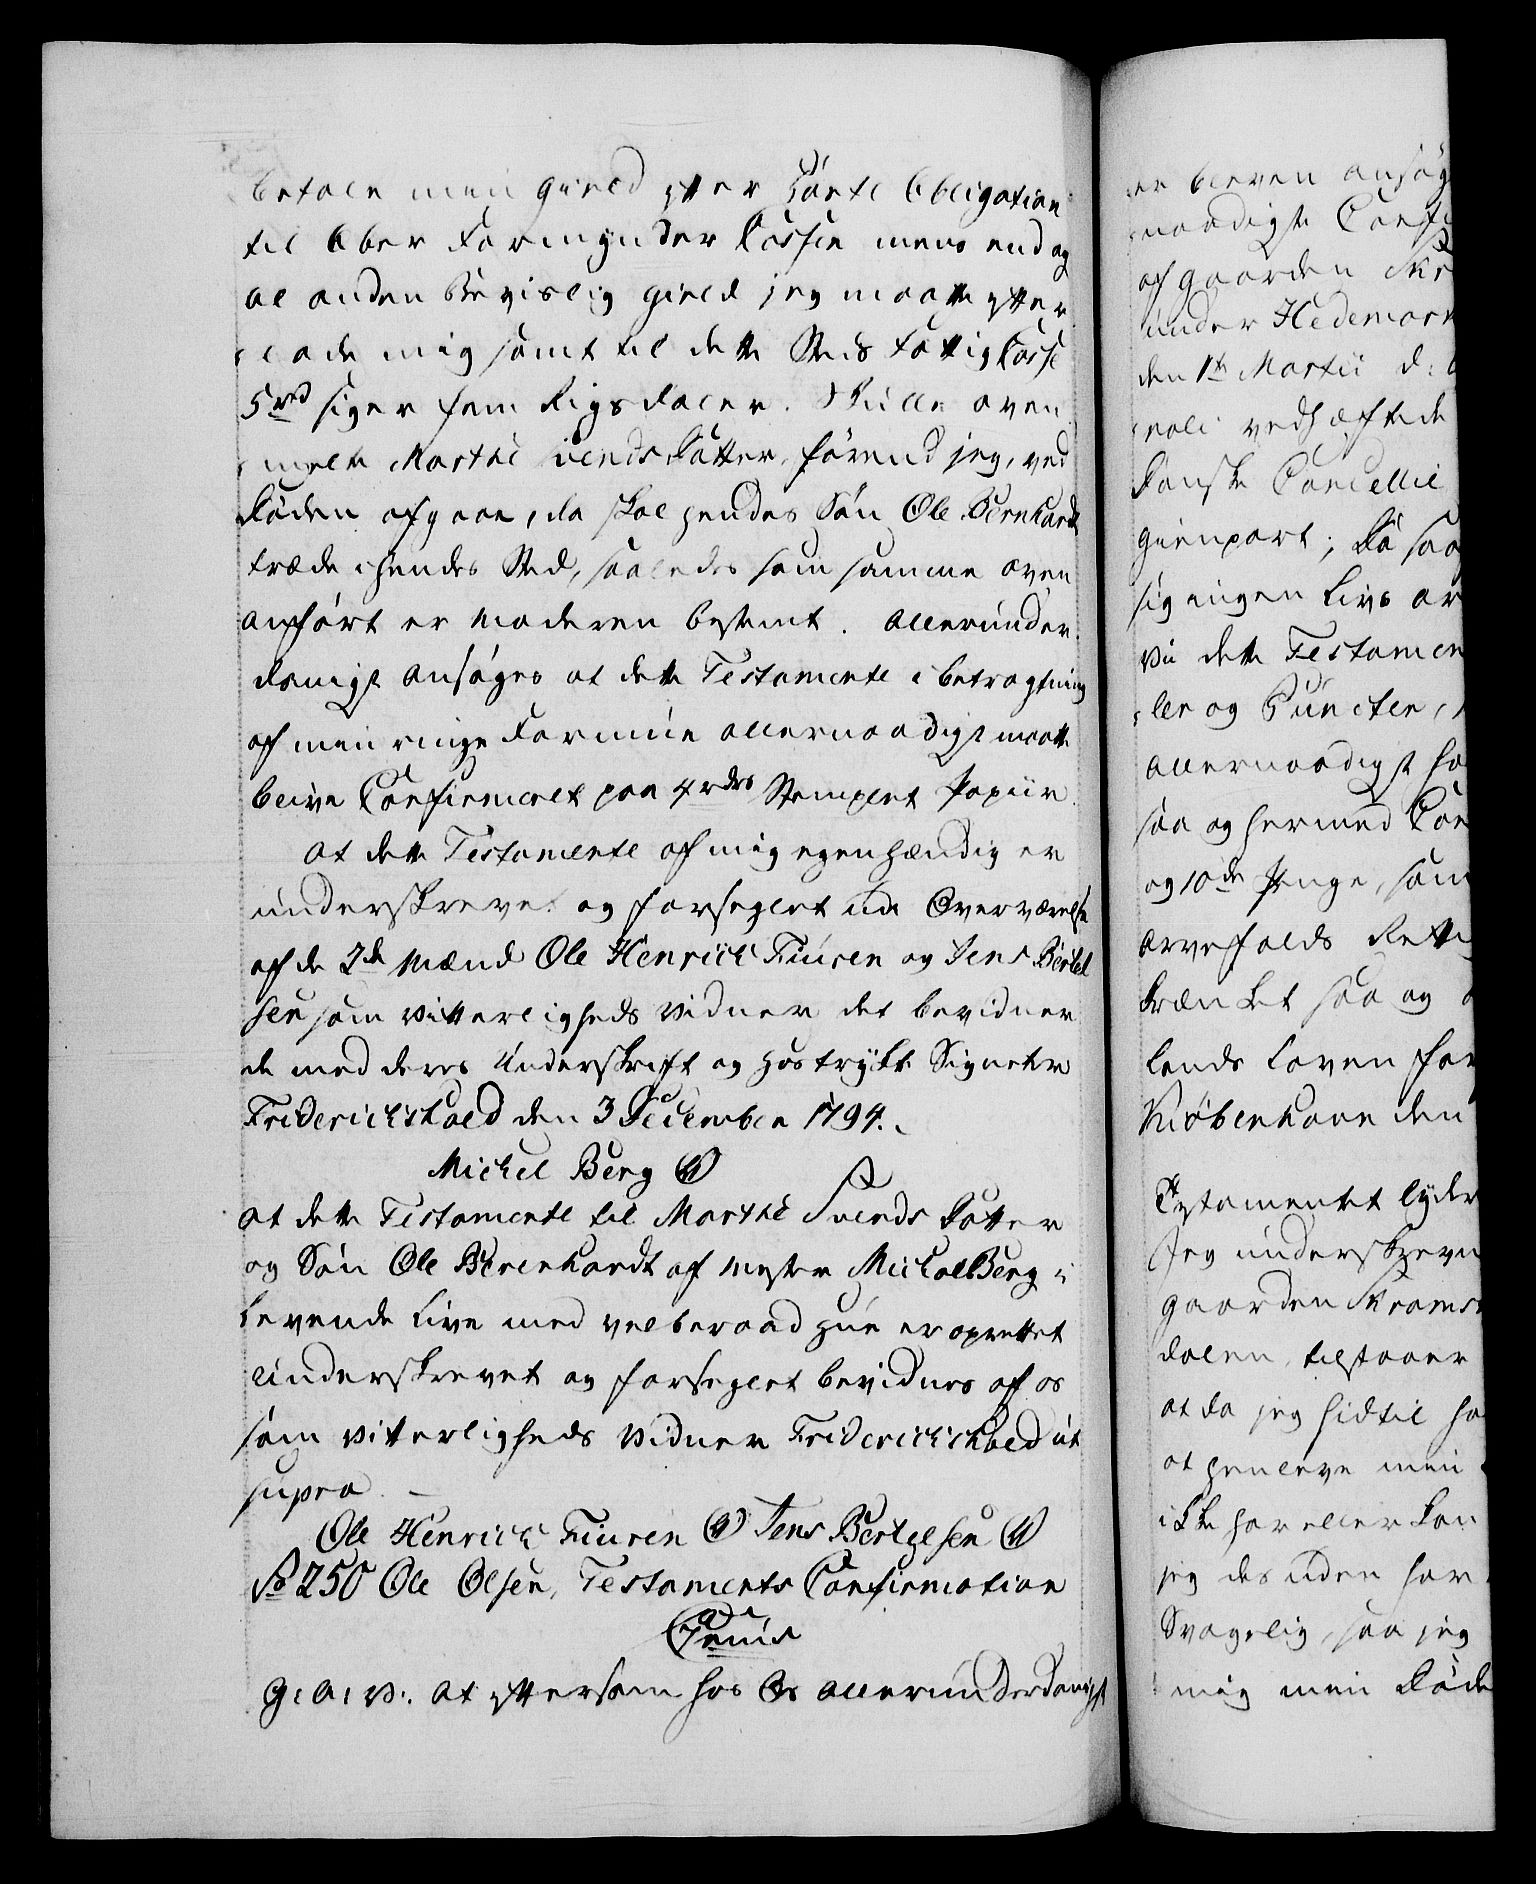 betale min Gield efter Dorte Obligation
til Over Formynder Cassen mens end og
al anden Bevislig Gield jeg maatte efter
lade mig samt til dette Steds Fattig Casse
5 rd siger fem Rigsdaler. Skulle oven
melte Marthe Svends Datter, førend jeg, ved
Døden afgaae, da skal hendes Søn Ole Bernhardt
træde i hendes Sted, saaledes som samme oven
anført er Moderen bestemt. Allerunder
danigst ansøges at dette Testamente i betragtning
af min ringe Formue allernaadigst maatte
blive Confirmeret paa 4 rdrs Stemplet Papiir.
At dette Testamente af mig egenhændig er
underskrevet og forseglet udi Overværelse
af de 2de Mænd Ole Henrich Fiuren og Jens Bertel
sen som Vitterligheds Vidner det bevidner
de med deres Underskrift og hostrykte Signeter
Friderichshald den 3 December 1794.
Michel Berg
At dette Testamente til Marthe Svends Datter
og Søn Ole Berenhardt af Mester Michal Berg i
levende Live med velberaad Hue er oprettet
underskrevet og forseglet bevidnes af os
som Vitterligheds Vidner Friderichshald ut
supra.
Ole Henrich Fiuren Jens Bertelsen
No 250 Ole Olsen, Testaments Confirmation
G: A: V: At eftersom hos Os allerunderdanigst
er bleven ansøg
naadigste Confi
af Gaarden Skr
under Hedemark
den 1te Martii
vedhæftede
Danske Cancellie
Gienpart; Da saa
sig ingen Livs ar
Vii dette Testamen
ler og Puncter,
allernaadigst ha
saa og hermed Con
og 10de Penge, som
Arvefalds Rette
krænket saa og
Lands Loven for
Kiøbenhavn den
Testamentet lyder
Jeg underskrevne
Gaarden Skramst
dalen, tilstaaer
at da jeg hidtil ha
at henleve min
ikke har eller kan
jeg desuden har
Svagelig, saa jeg
mig min Døde